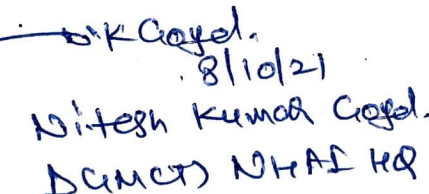 N.K Goyal.
8/10/21
Nitesh Kumar Goyal.
DGM(T) NHAI HQ